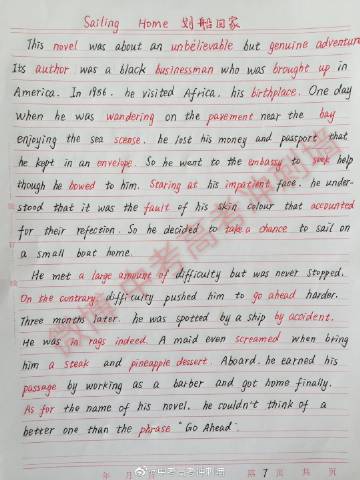 Sailing Home 划船回家
This novel was about an unbelievable but genuine adventure
Its author was a black businessman who was brought up in
America. In 1956, he visited Africa, his birthplace. One day
when he was wandering on the pavement near the bay
enjoying the sea scense, he lost his money and passport that
he kept in an envelope. So he went to the embassy to seek help
though he bowed to him. Staring at his impatient face, he under-
stood that it was the fault of his skin colour that accounted
for their refection. So he decided to take a chance to sail on
a small boat home.
He met a large amount of difficulty but was never stopped.
On the contrary, difficulty pushed him to go ahead harder.
Three months later, he was spotted by a ship by accident.
He was in rags indeed. A maid even screamed when bring
him a steak and pineapple dessert. Aboard, he earned his
passage by working as a barber and got home finally.
As for the name of his novel, he couldn't think of a
better one than the phrase "Go Ahead".
年 月 日
第 7 页 共 页